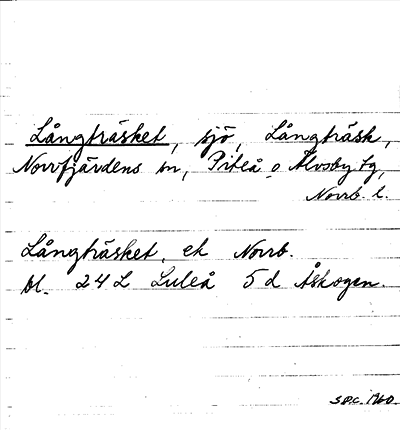 Långträsket, sjö, Långträsk,
Norrfjärdens sn, Piteå o Älvsby tg,
Norrb. l.
Långträsket, ek Norrb.
bl. 24 L Luleå 5 d Åskogen.
S.P.C. 1960.